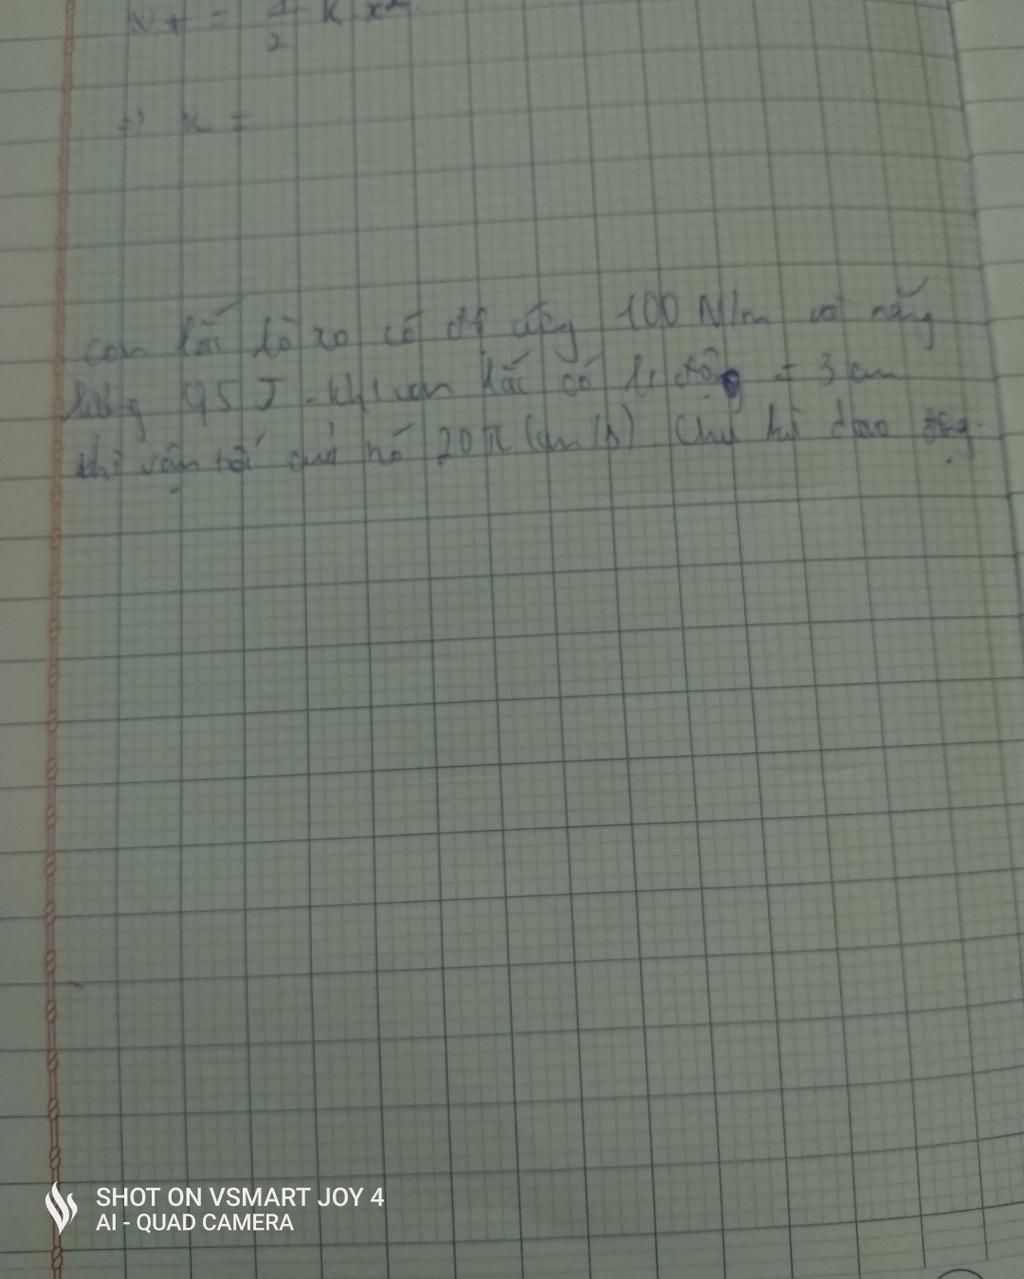 Wt = 1/2 k x²
=> x =
con lắc lò xo có độ cứng 100 N/m và năng
lượng 95 J. khi con lắc có li độ = 3 cm
thì vận tốc của nó 20π (cm/s). Chu kì dao động
SHOT ON VSMART JOY 4
AI - QUAD CAMERA